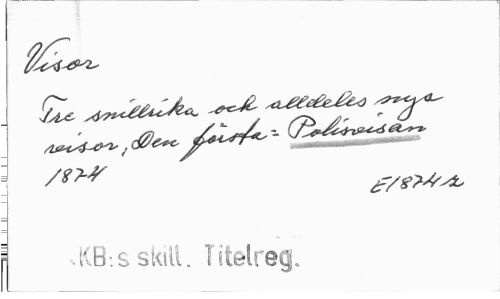 Visor
Tre snillrika och alldeles nya
visor, Den första = Polisvisan
1874
E1874 z
KB:s skill. Titelreg.